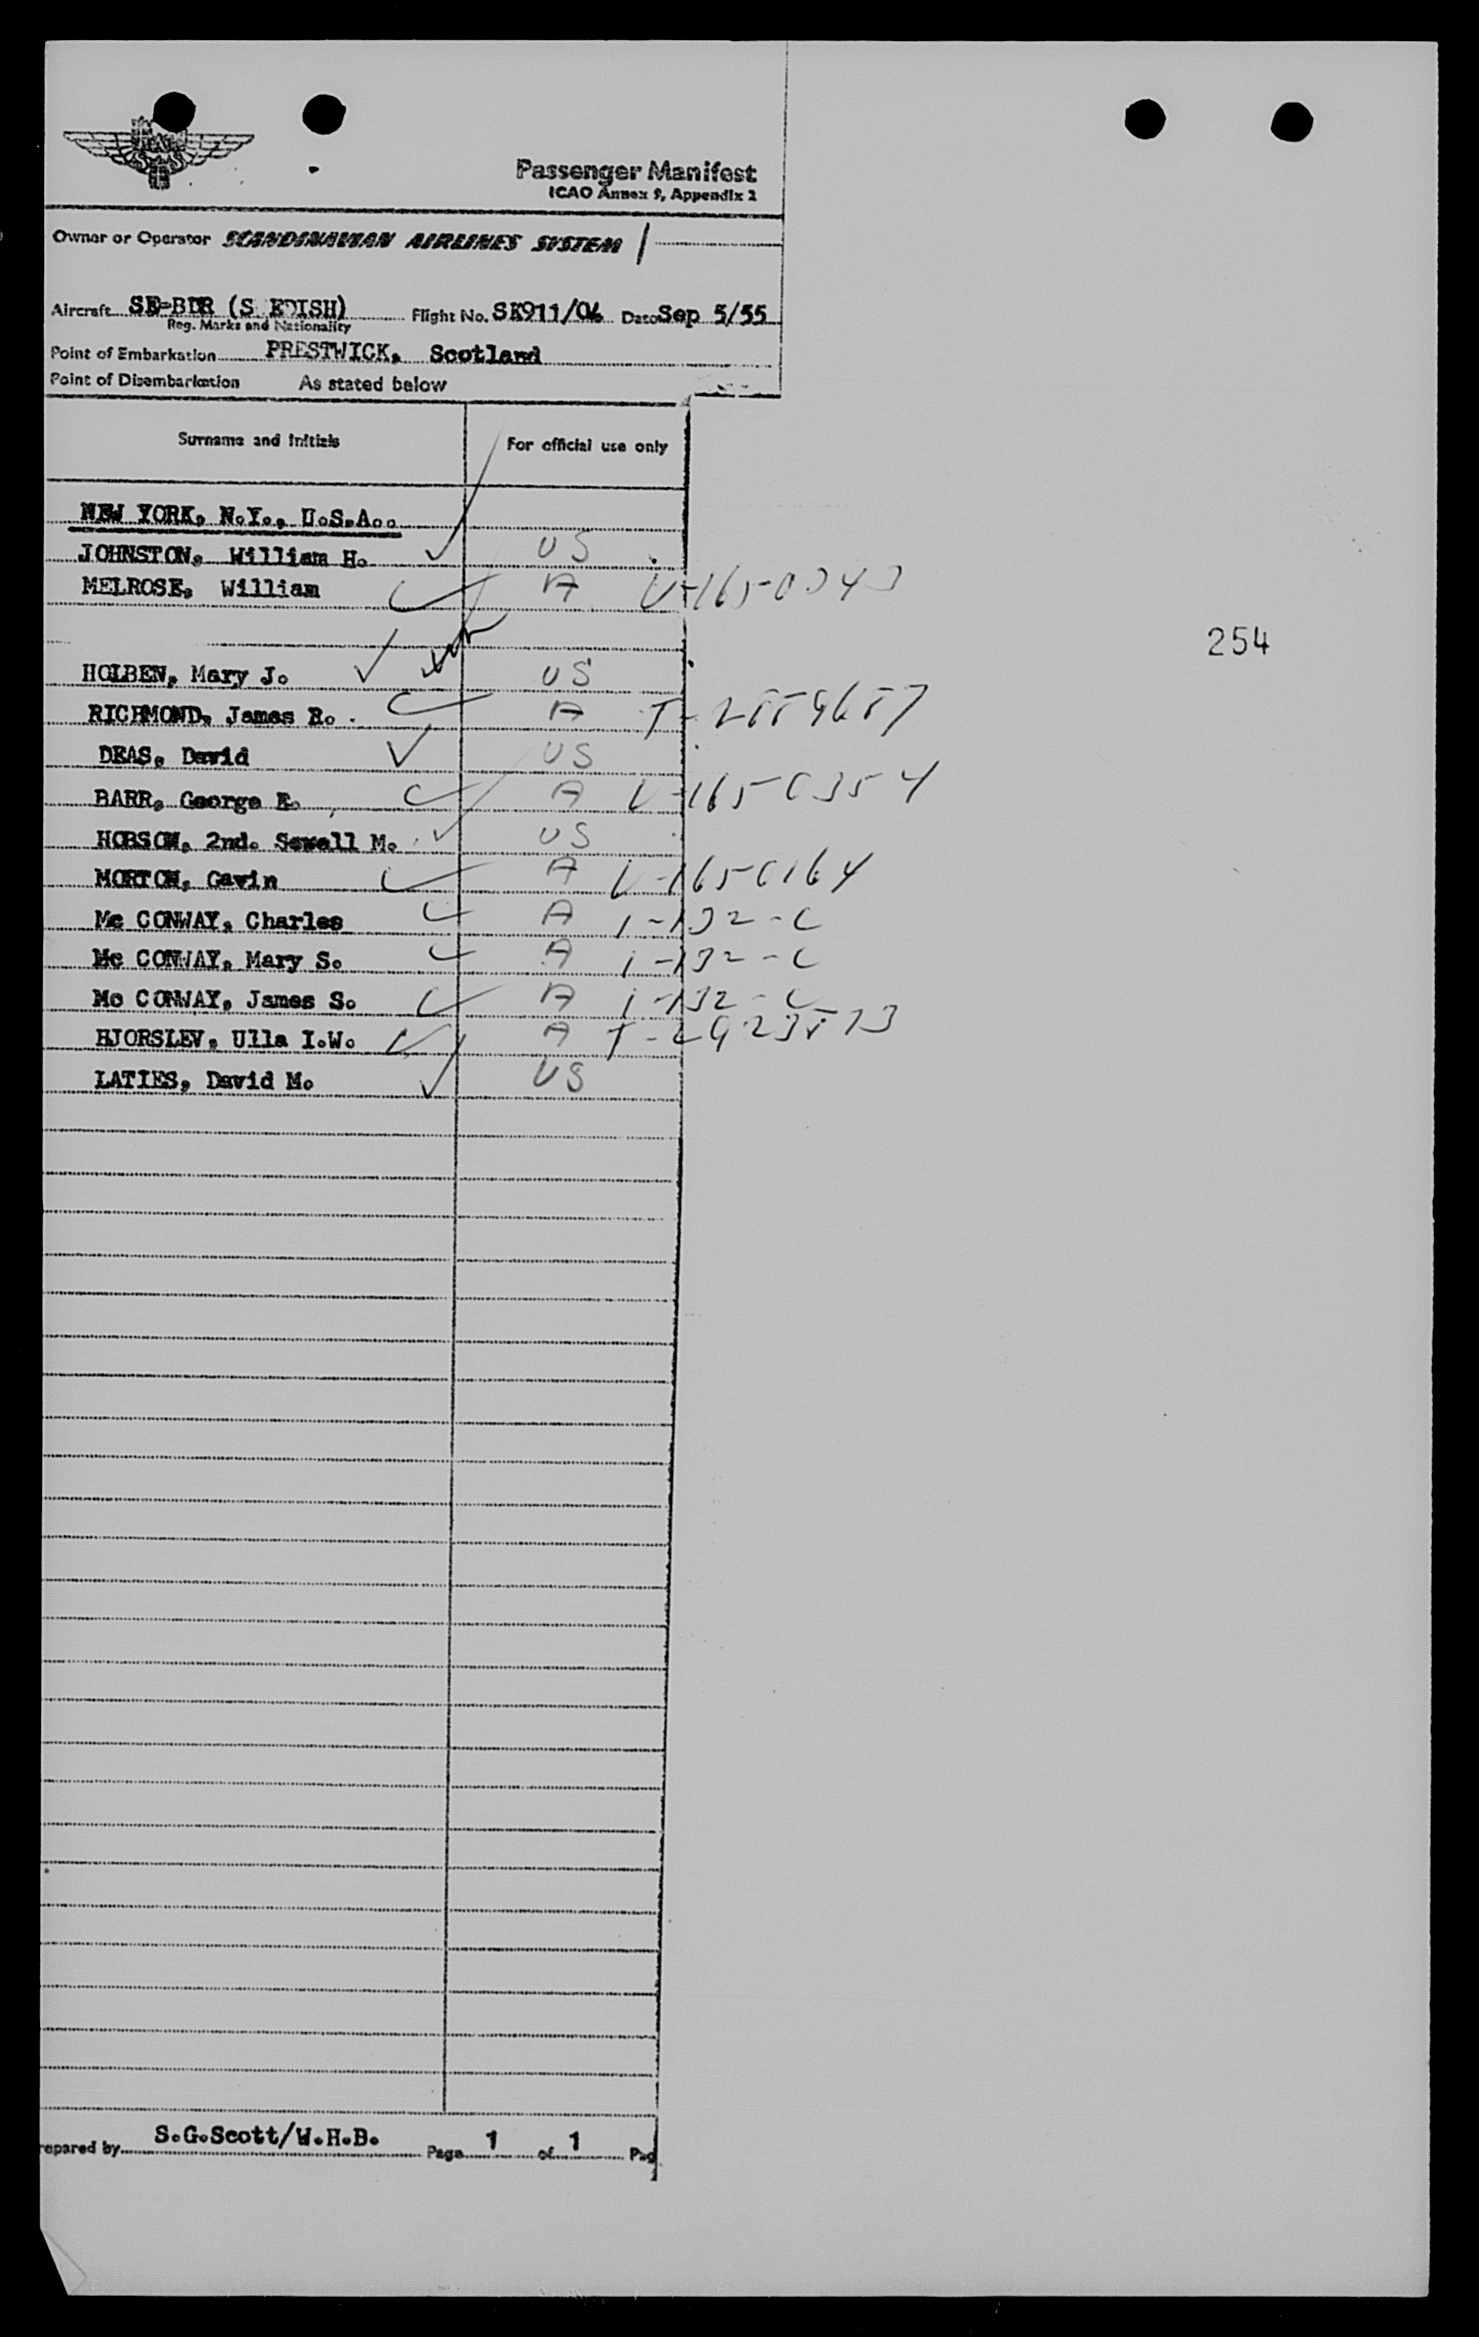 Passenger Manifest
ICAO Annex 9, Appendix 2
Owner or Operator SCANDINAVIAN AIRLINES SYSTEM
Aircraft SE-BDR (S EDISH) Flight No. SK911/04 Date Sep 5/55
Reg. Marks and Nationality
Point of Embarkation PRESTWICK, Scotland
Point of Disembarkation As stated below
Surname and Initials For official use only
NEW YORK, N.Y., U.S.A..
JOHNSTON, William H. US
MELROSE, William A V-165-0343
254
HOLBEN, Mary J. US
RICHMOND, James R. A T-2889687
DEAS, David US
BARR, George E. A V-165-0354
HOBSON, 2nd. Sewall M. US
MORTON, Gavin A V-1650164
Mc CONWAY, Charles A 1-132-C
Mc CONWAY, Mary S. A 1-132-C
Mc CONWAY, James S. A 1-132-C
HJORSLEV, Ulla I.W. A T-2923873
LATIES, David M. US
epared by S.G.Scott/W.H.B. Page 1 of 1 Pag